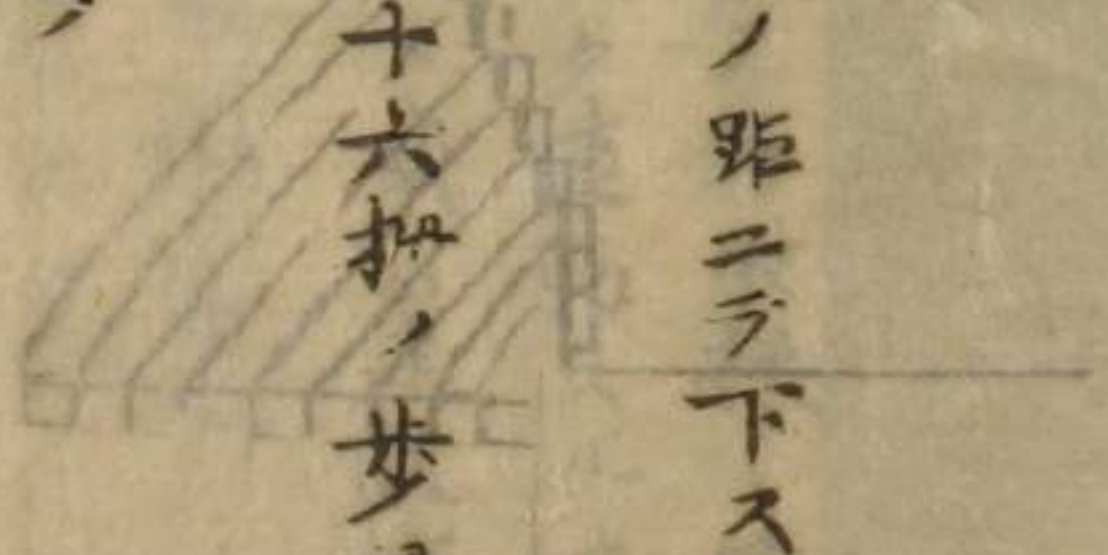 ノ距ニテ下ス
十六
ノ歩